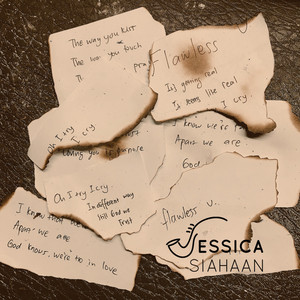 The way you kiss
The way you touch
Flawless U.
Is getting real
Is seems like real
I cry
Oh I cry
I cry
Loving you is
I know we're
Apart we are
God
Oh I cry I cry
In different way
Till God we
First
I know that
Apart we are
God knows, we're so in love
flawless U.
JESSICA
SIAHAAN